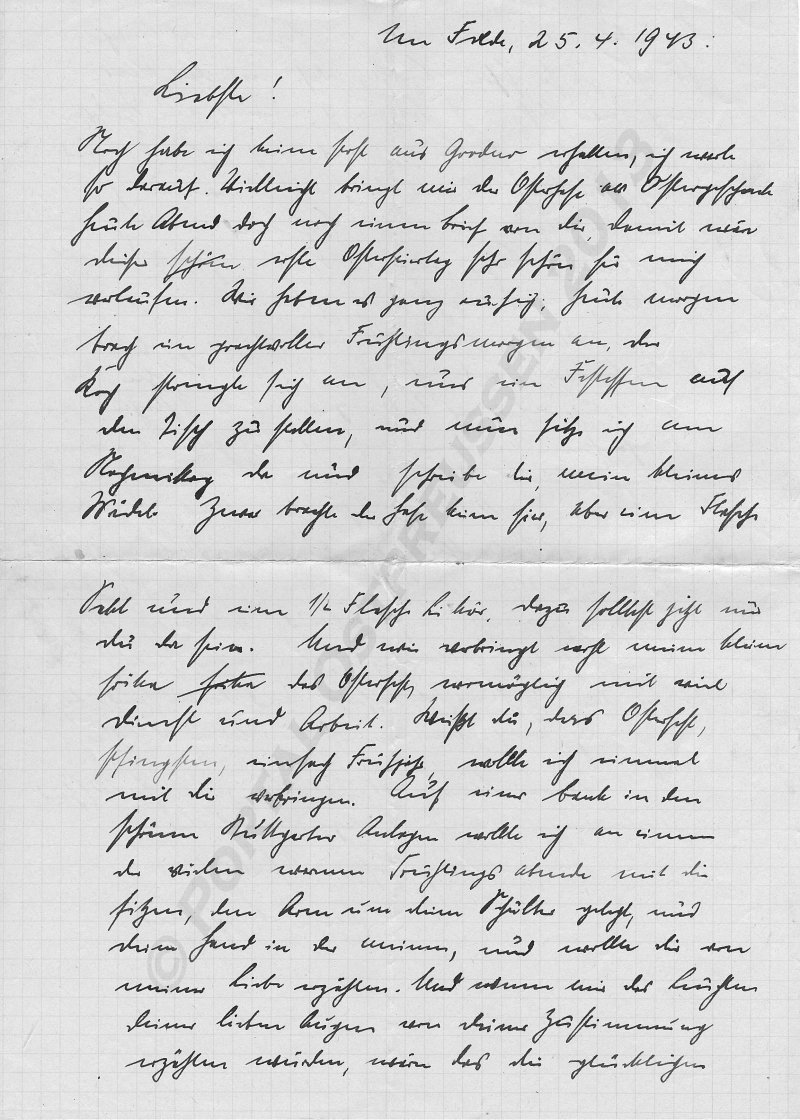 Im Felde, 25.4.1943.
Liebste!
Noch habe ich keine Post aus Grodno erhalten, ich warte
so darauf. Vielleicht bringt mir der Osterhase als Ostergeschenk
heute Abend doch noch einen Brief von dir, damit wär
dieser schöne erste Osterfeiertag sehr schön für mich
verlaufen. Wir haben es ganz ruhig, heute morgen
brach ein prachtvoller Frühlingsmorgen an, der
Koch strengte sich an, uns ein Festessen auf
den Tisch zu stellen, und nun sitze ich am
Nachmittag da und schreibe dir, mein kleines
Mädel. Zwar brachte der Hase keine Eier, aber eine Flasche
Sekt und eine 1/2 Flasche Likör, dazu solltest jetzt nur
du da sein. Und wie verbringt wohl meine kleine
Erika das Osterfest, womöglich mit viel
Dienst und Arbeit. Weißt du, das Osterfest,
Pfingsten, einfach Frühjahr, wollte ich einmal
mit dir verbringen. Auf einer Bank in den
schönen Stuttgarter Anlagen wollte ich an einem
der vielen warmen Frühlingsabende mit dir
sitzen, den Arm um deine Schulter gelegt, und
deine Hand in der meinen, und wollte dir von
meiner Liebe erzählen. Und wenn mir das Leuchten
deiner lieben Augen von deiner Zustimmung
erzählen würden, wären das die glücklichen
© PORTAL OSTPREUSSEN 2013